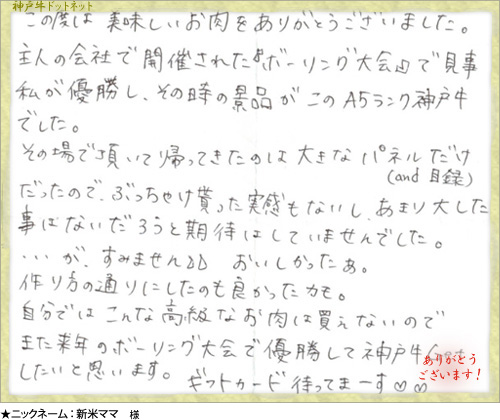 神戸牛ドットネット
この度は美味しいお肉をありがとうございました。
主人の会社で開催された『ボーリング大会』で見事
私が優勝し、その時の景品がこのA5ランク神戸牛
でした。
その場で頂いて帰ってきたのは大きなパネルだけ
(and 目録)
だったので、ぶっちゃけ貰った実感もないし、あまり大した
事はないだろうと期待はしていませんでした。
…が、すみません おいしかったぁ。
作り方の通りにしたのも良かったカモ。
自分ではこんな高級なお肉は買えないので
また来年のボーリング大会で優勝して神戸牛
したいと思います。 ギフトカード待ってまーす♡♡
ありがとう
ございます!
★ニックネーム:新米ママ 様